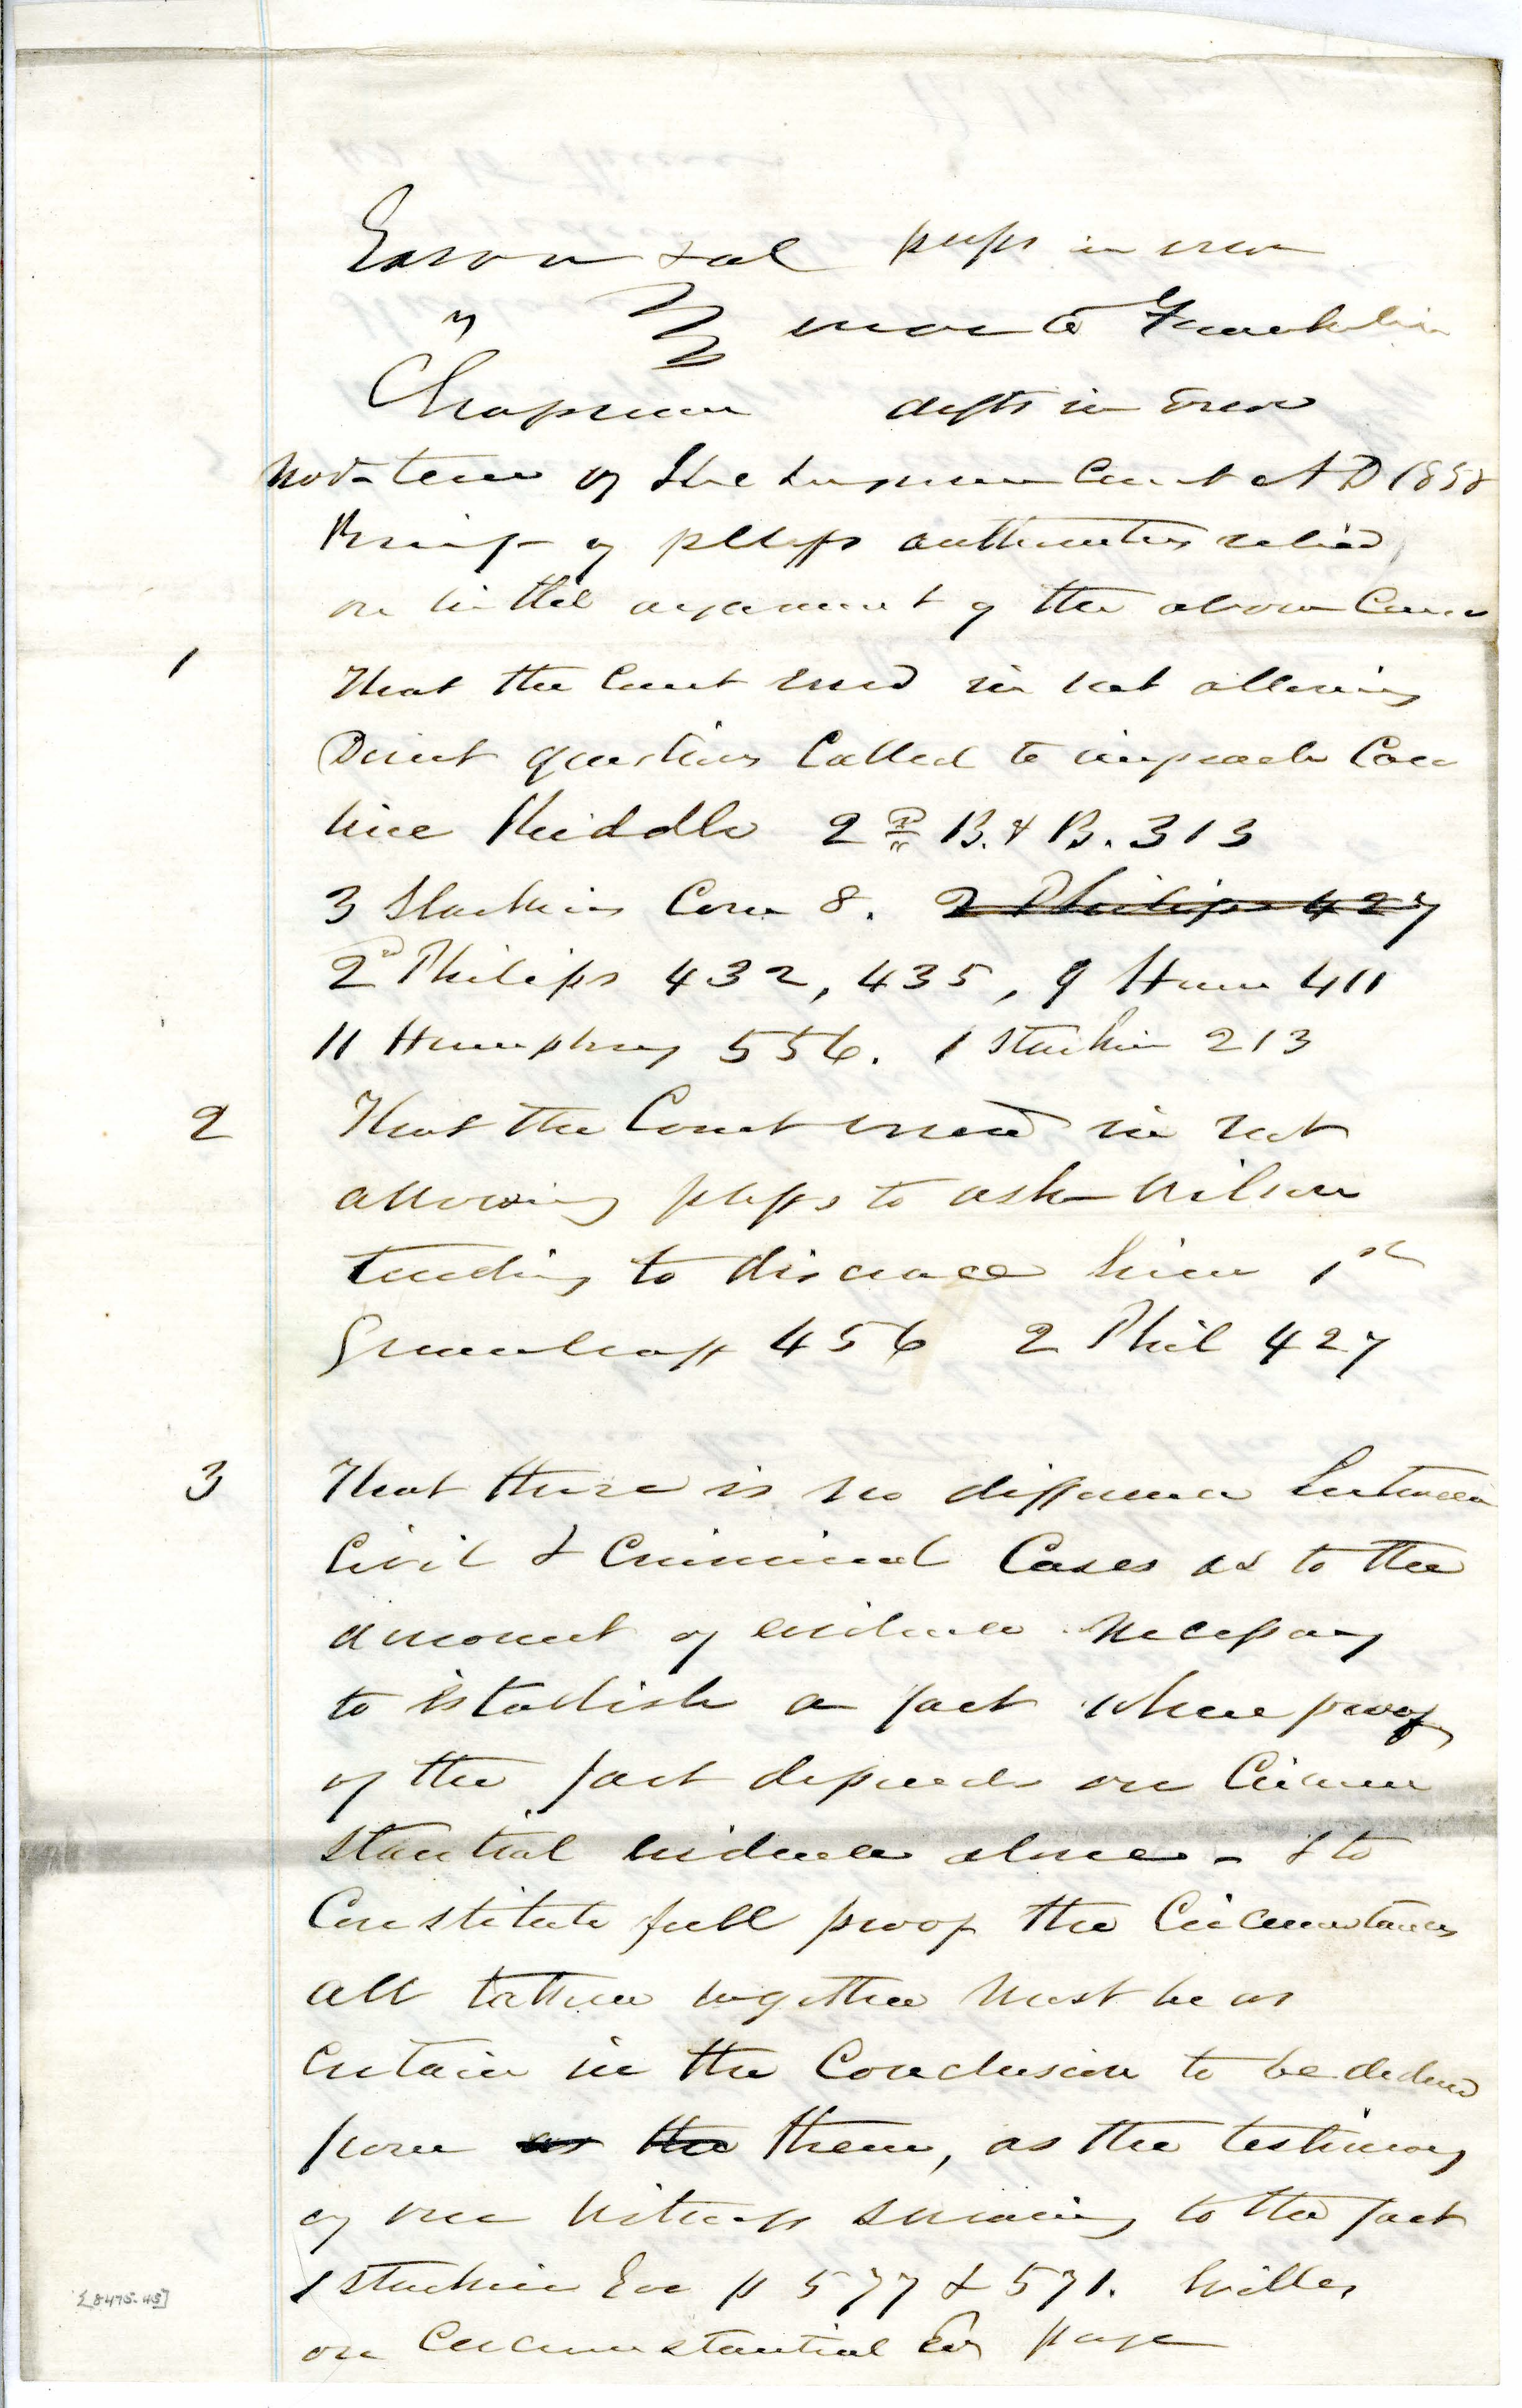 Eason et al plffs in error
vs error to Franklin
Chapman defts in Error
Nov- term of the Supreme Court A D 1858
Brief of pltffs authorities relied
on in the argument of the above Cause
1 That the Court erred in not allowing
Direct questions Called to impeach Caro
line Riddle 2nd B. & B. 313
3 Starkies Com 8. 2 Philips 427
2d Philips 432, 435, 9 Hum 411
11 Humphrey 556. 1 Starkie 213
2 That the Court erred in not
allowing plffs to ask Wilson
tending to discrace him 1st
Greenleaff 456 2 Phil 427
3 That there is no difference between
Civil & Criminal Cases as to the
amount of evidence Necessary
to istablish a fact where proof
of the fact depends on Circum
stantial evidence alone - & to
Constitute full proof the Circumstances
all taken together Must be as
certain in the Conclusion to be deduced
from as the them, as the testimony
of one Witness swearing to the fact
1 Starkie Eve p 577 & 571. Willes
on Circumstantial Ev page
[8475-45]